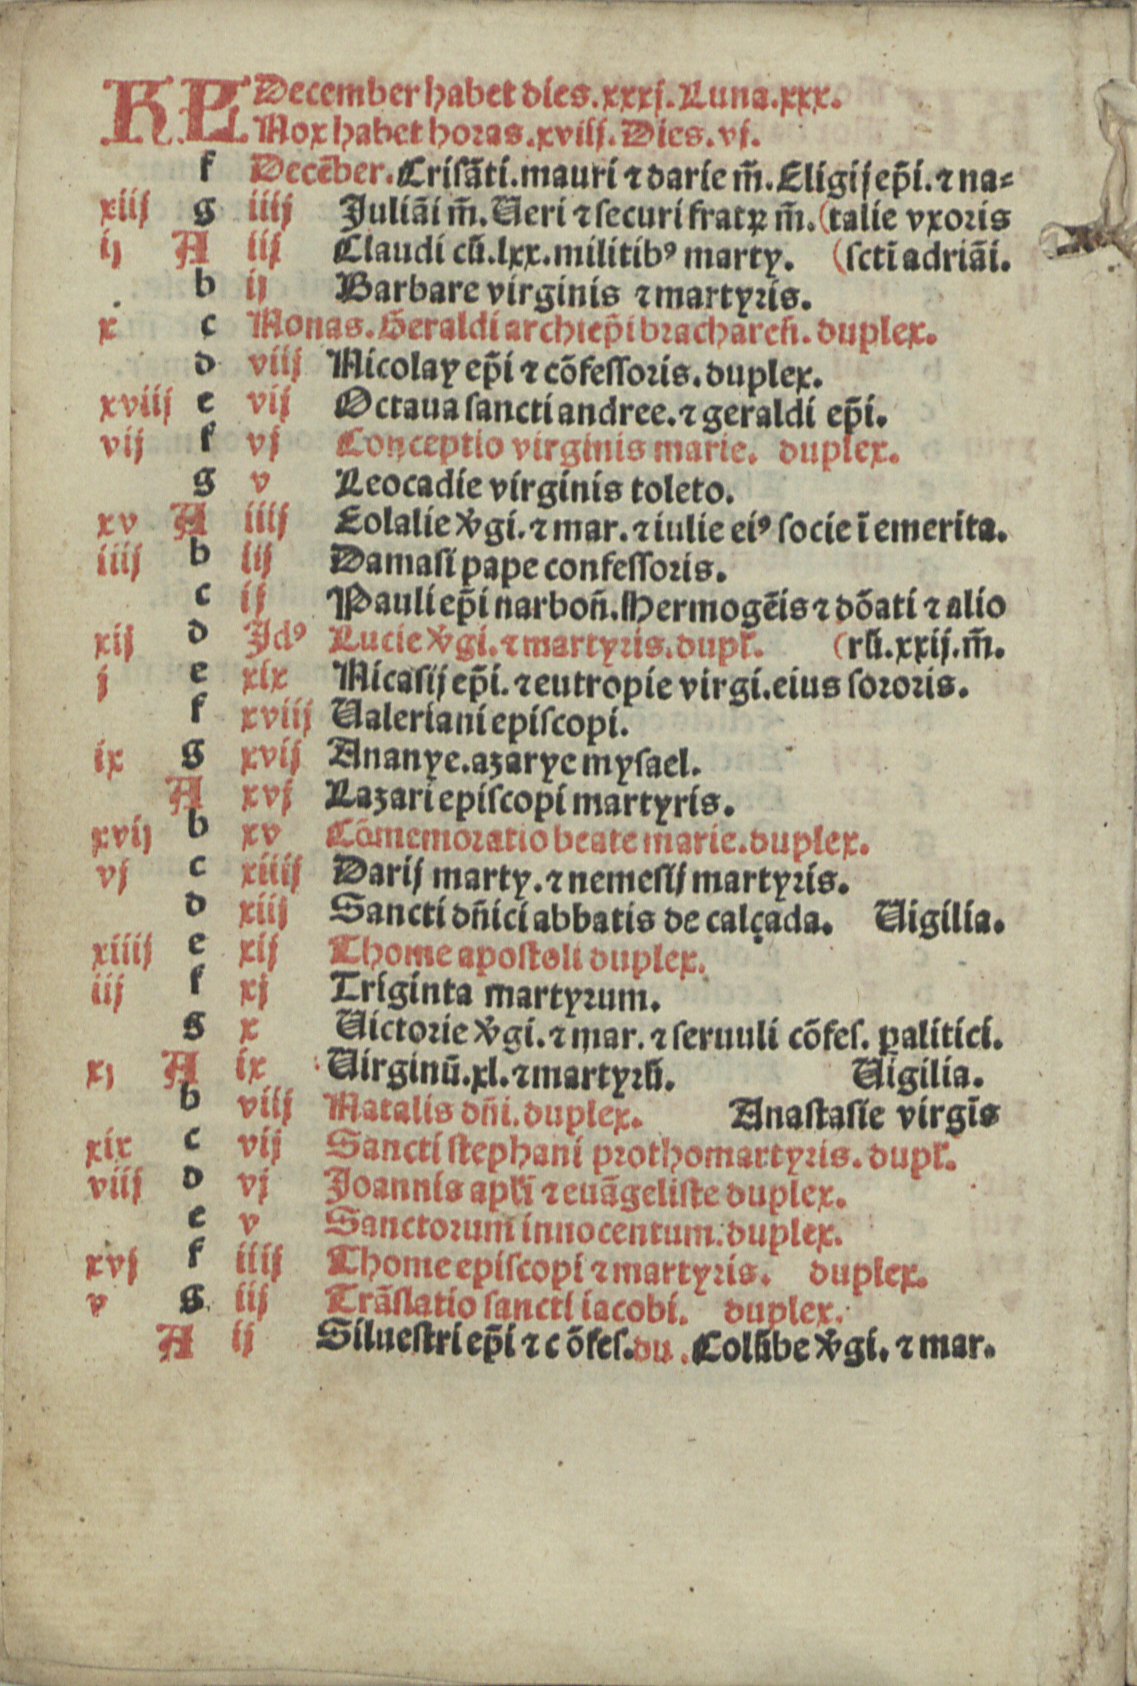 KL December habet dies.xxxj.Luna.xxx.
Nox habet horas.xviij.Dies.vj.
f Decēber.Crisāti.mauri ⁊ darie m̄.Eligij ep̄i.⁊ na⸗
xiij g iiij Juliāi m̄.Ueri ⁊ securi fratꝝ m̄.(talie vxoris
ij A iij Claudi cū.lxx.militibꝰ marty. (scti adriāi.
b ij Barbare virginis ⁊ martyris.
x c Nonas.Geraldi archiep̄i bracharen̄. duplex.
d viij Nicolay ep̄i ⁊ cōfessoris.duplex.
xviij e vij Octaua sancti andree.⁊ geraldi ep̄i.
vij f vj Conceptio virginis marie. duplex.
g v Leocadie virginis toleto.
xv A iiij Eolalie v̄gi.⁊ mar.⁊ iulie eiꝰ socie ī emerita.
iiij b iij Damasi pape confessoris.
c ij Pauli ep̄i narbon̄.Hermogēis ⁊ dōati ⁊ alio
xij d Jdꝰ Lucie v̄gi.⁊ martyris.dupł. (rū.xxij.m̄.
j e xix Nicasij ep̄i.⁊ eutropie virgi.eius sororis.
f xviij Ualeriani episcopi.
ix g xvij Ananye.azarye mysael.
A xvj Lazari episcopi martyris.
xvij b xv Cōmemoratio beate marie.duplex.
vj c xiiij Darij marty.⁊ nemesij martyris.
d xiij Sancti dn̄ici abbatis de calçada. Uigilia.
xiiij e xij Thome apostoli duplex.
iij f xj Triginta martyrum.
g x Uictorie v̄gi.⁊ mar.⁊ seruuli cōfes. palitici.
xj A ix Uirginū.xl.⁊ martyrū. Uigilia.
b viij Natalis dn̄i.duplex. Anastasie virgīs
xix c vij Sancti stephani prothomartyris.dupł.
viij d vj Joannis apłi ⁊ euāgeliste duplex.
e v Sanctorum innocentum.duplex.
xvj f iiij Thome episcopi ⁊ martyris. duplex.
v g iij Trāslatio sancti iacobi. duplex.
A ij Siluestri ep̄i ⁊ cōfes.du.Colūbe v̄gi.⁊ mar.